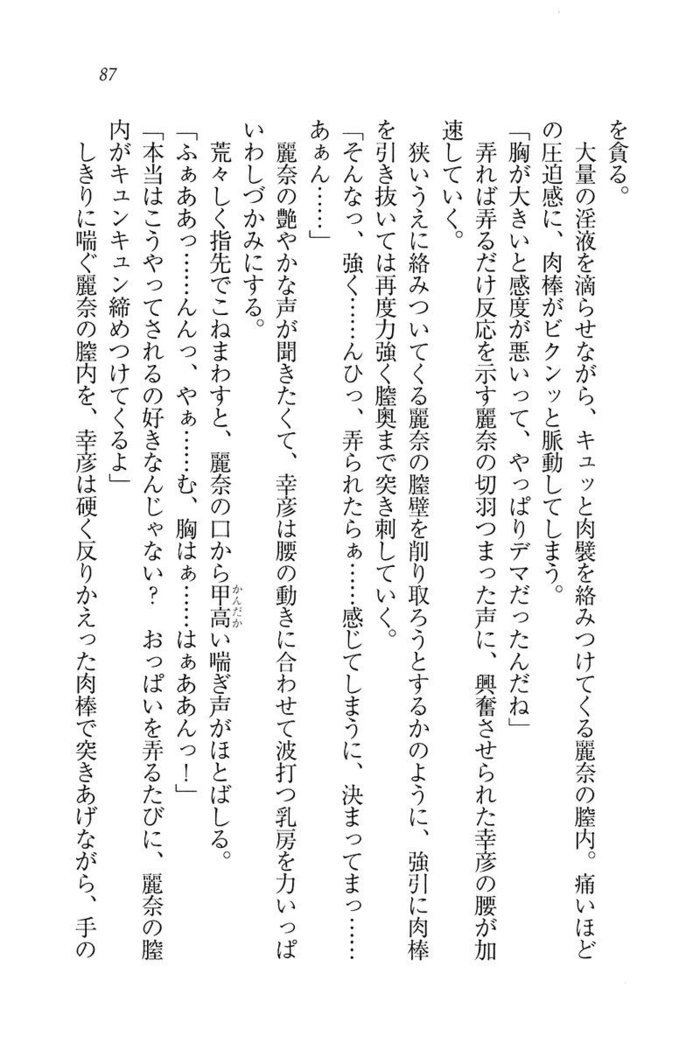 87
を貪る。
大量の淫液を滴らせながら、キュッと肉襞を絡みつけてくる麗奈の膣内。痛いほど
の圧迫感に、肉棒がビクンッと脈動してしまう。
「胸が大きいと感度が悪いって、やっぱりデマだったんだね」
弄れば弄るだけ反応を示す麗奈の切羽つまった声に、興奮させられた幸彦の腰が加
速していく。
狭いうえに絡みついてくる麗奈の膣壁を削り取ろうとするかのように、強引に肉棒
を引き抜いては再度力強く膣奥まで突き刺していく。
「そんなっ、強く……んひっ、弄られたらぁ……感じてしまうに、決まってまっ……
あぁん……」
麗奈の艶やかな声が聞きたくて、幸彦は腰の動きに合わせて波打つ乳房を力いっぱ
いわしづかみにする。
荒々しく指先でこねまわすと、麗奈の口から甲高い喘ぎ声がほとばしる。
かんだか
「ふぁああっ……んんっ、やぁ……む、胸はぁ……はぁああんっ！」
「本当はこうやってされるの好きなんじゃない？　おっぱいを弄るたびに、麗奈の膣
内がキュンキュン締めつけてくるよ」
しきりに喘ぐ麗奈の膣内を、幸彦は硬く反りかえった肉棒で突きあげながら、手の